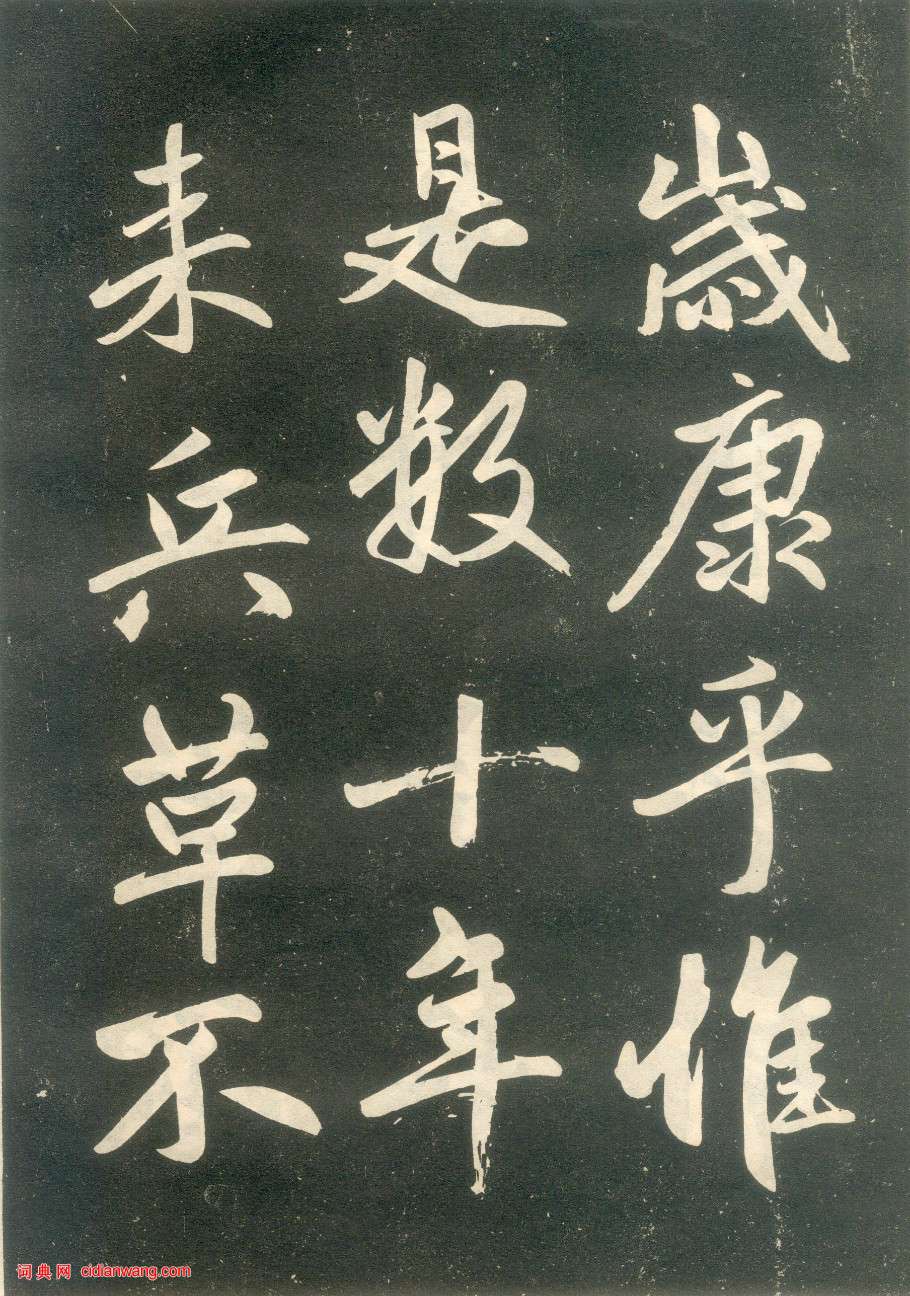 歲康乎惟
是数十年
来兵草不
词典网 cidianwang.com